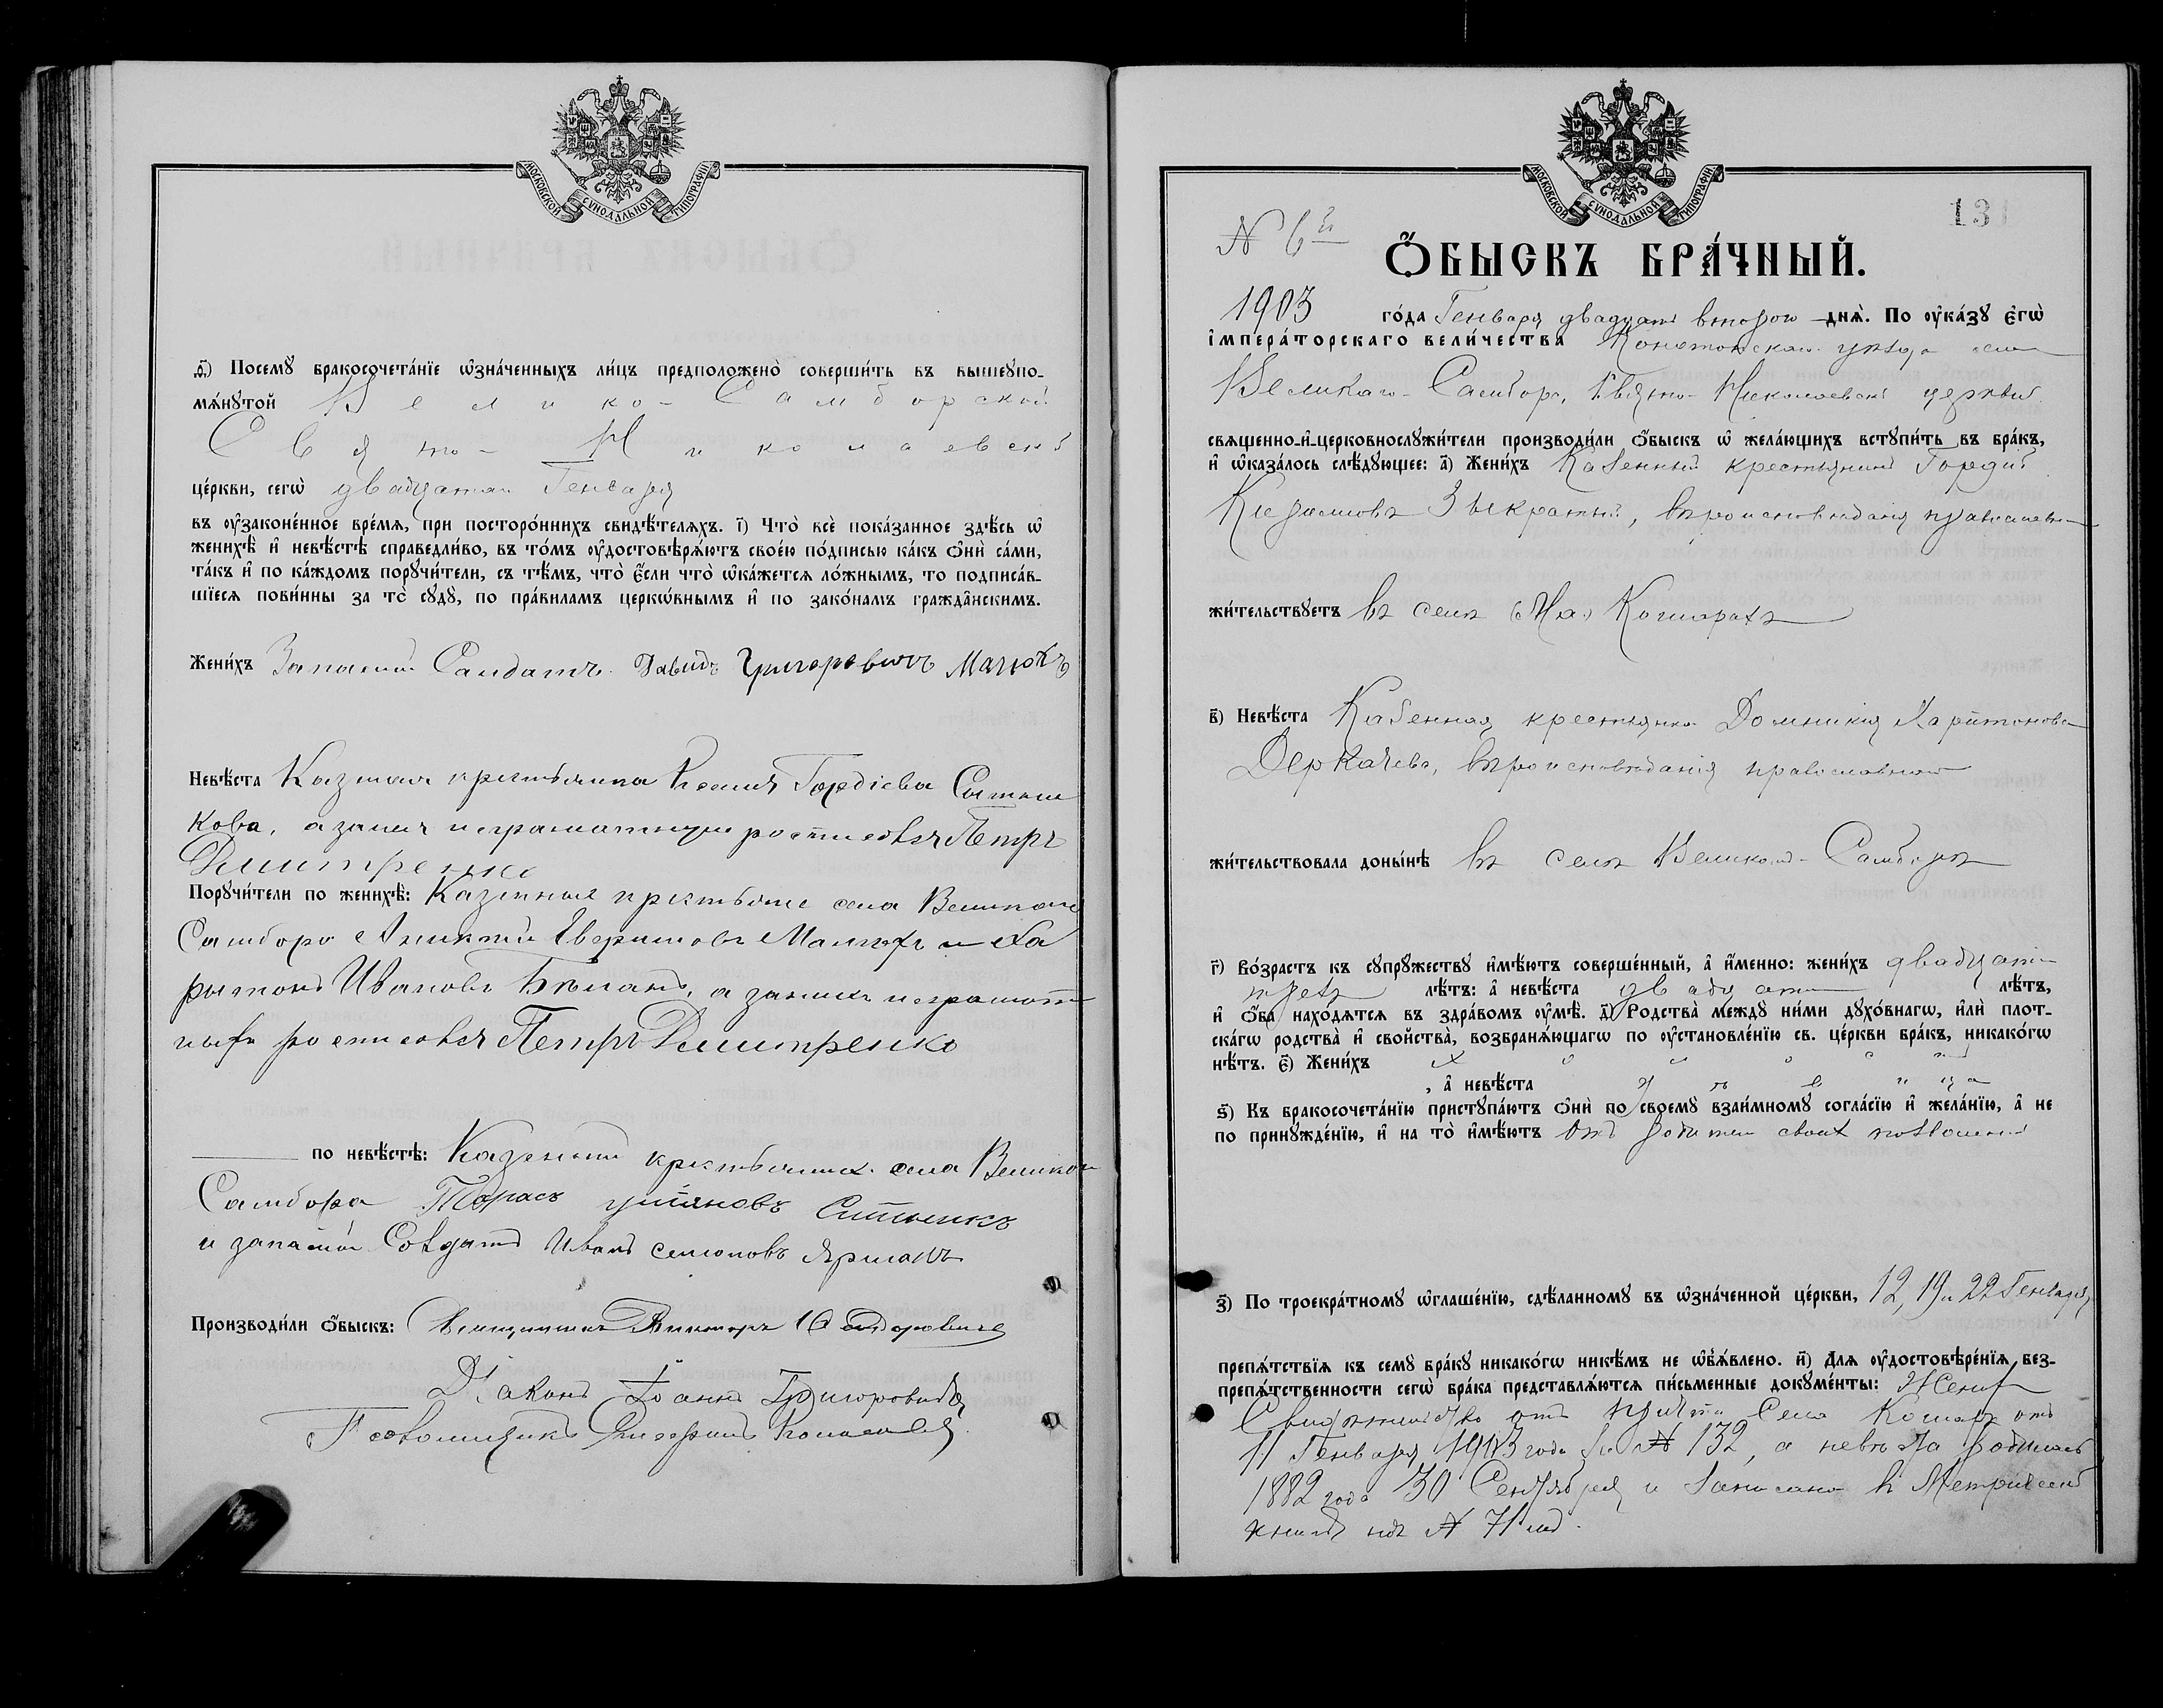 МОСКОВСКОЙ СѴНОДАЛЬНОЙ ТИПОГРАФІИ
ѳ҃) Посемꙋ̀ бракосочета́нїе ѡ҆зна́ченныхъ ли́цъ предположено̀ соверши́ть въ вышеꙋпо-
мѧ́нꙋтой Велико-Самборской
Свято-Николаевской
це́ркви, сегѡ̀ двадцатаго Генваря
въ ᲂу҆законе́нное вре́мѧ, при посторо́ннихъ свидѣ́телѧхъ. і҃) Что̀ всѐ пока́занное здѣ́сь ѡ҆
женихѣ̀ и҆ невѣ́стѣ справедли́во, въ то́мъ ᲂу҆достовѣрѧ́ютъ свое́ю по́дписью ка́къ ѻ҆нѝ са́ми,
та́къ и҆ по ка́ждомъ порꙋчи́тели, съ тѣ́мъ, что̀ є҆́сли что̀ ѡ҆ка́жетсѧ ло́жнымъ, то подписа́в-
шїесѧ пови́нны за то̀ сꙋдꙋ̀, по пра́виламъ церкѡ́внымъ и҆ по зако́намъ гражда̂нскимъ.
Жени́хъ Запасный Солдатъ Давидъ Григоровичъ
Невѣ́ста Казенная крестьянка Гордіева
кова, а за нея неграмотную росписался Петръ
Дмитренко
Порꙋчи́тели по женихѣ̀: Казенные крестьяне села Великаго
Самбора и Ха
ритонъ Ивановъ Бѣланъ, а за нихъ неграмот
ныхъ росписался Петръ Дмитренко
по невѣ́стѣ: Казенный крестьянинъ села Великаго
Самбора Тарасъ
и запасный Солдатъ Иванъ Семионовъ Ярмакъ
Производи́ли ѻ҆́быскъ: Священникъ Викторъ
Діаконъ Іоаннъ Григоровичъ
Псаломщикъ
МОСКОВСКОЙ СѴНОДАЛЬНОЙ ТИПОГРАФІИ
131
N 6й
Ѻ҆́БЫСКЪ БРА́ЧНЫЙ.
1903 го́да Генваря двадцать второго днѧ̀. По ᲂу҆ка́зꙋ є҆гѡ̀
і҆мпера́торскаго вели́чества Конотопскаго уѣзда села
Великаго-Самбора, Свято-Николаевской церкви
свѧщенно-и҆-церковнослꙋжи́тели производи́ли ѻ҆́быскъ ѡ҆ жела́ющихъ встꙋпи́ть въ бра́къ,
и҆ ѡ҆каза́лось слѣ́дꙋющее: а҃) Жени́хъ Казенный крестьянинъ Гордій
вѣроисповѣданія православнаго
жи́тельствꙋетъ въ селѣ Кошарахъ
в҃) Невѣ́ста Казенная крестьянка Домникія Харитонова
Деркачева, вѣроисповѣданія православнаго
жи́тельствовала доны́нѣ въ селѣ Великомъ-Самборѣ
г҃) Во́зрастъ къ сꙋпрꙋ́жествꙋ и҆мѣ́ютъ соверше́нный, а҆ и҆́менно: жени́хъ двадцати
трехъ лѣ́тъ: а҆ невѣ́ста двадцати лѣ́тъ,
и҆ ѻ҆́ба нахо́дѧтсѧ въ здра́вомъ ᲂу҆мѣ̀. д҃) Родства̀ междꙋ̀ ни́ми дꙋхо́внагѡ, и҆лѝ плот-
ска́гѡ родства̀ и҆ сво́йства̀, возбранѧ́ющагѡ по ᲂу҆становле́нїю св. це́ркви бра́къ, никако́гѡ
нѣ́тъ. є҃) Жени́хъ холостъ
, а҆ невѣ́ста дѣвица
ѕ҃) Къ бракосочета́нїю пристꙋпа́ютъ ѻ҆нѝ по своемꙋ̀ взаи́мномꙋ согла́сїю и҆ жела́нїю, а҆ не
по принꙋжде́нїю, и҆ на то̀ и҆мѣ́ютъ отъ родителей своихъ позволеніе
з҃) По троекра́тномꙋ ѡ҆глаше́нїю, сдѣ́ланномꙋ въ ѡ҆зна́ченной це́ркви, 12, 19 и 22 Генваря
препѧ́тствїѧ къ семꙋ̀ бра́кꙋ никако́гѡ никѣ́мъ не ѡ҆б̾ѧ́влено. и҃) Длѧ ᲂу҆достовѣре́нїѧ без-
препѧ́тственности сегѡ̀ бра́ка представлѧ́ютсѧ пи́сьменные докꙋме́нты: Жениху
Свидѣтельство отъ причта Села Кошаръ отъ
11 Генваря 1903 года за № 132, а невѣста родилась
1882 года 30 Сентября и записано въ Метрической
книгѣ подъ № 71мъ.